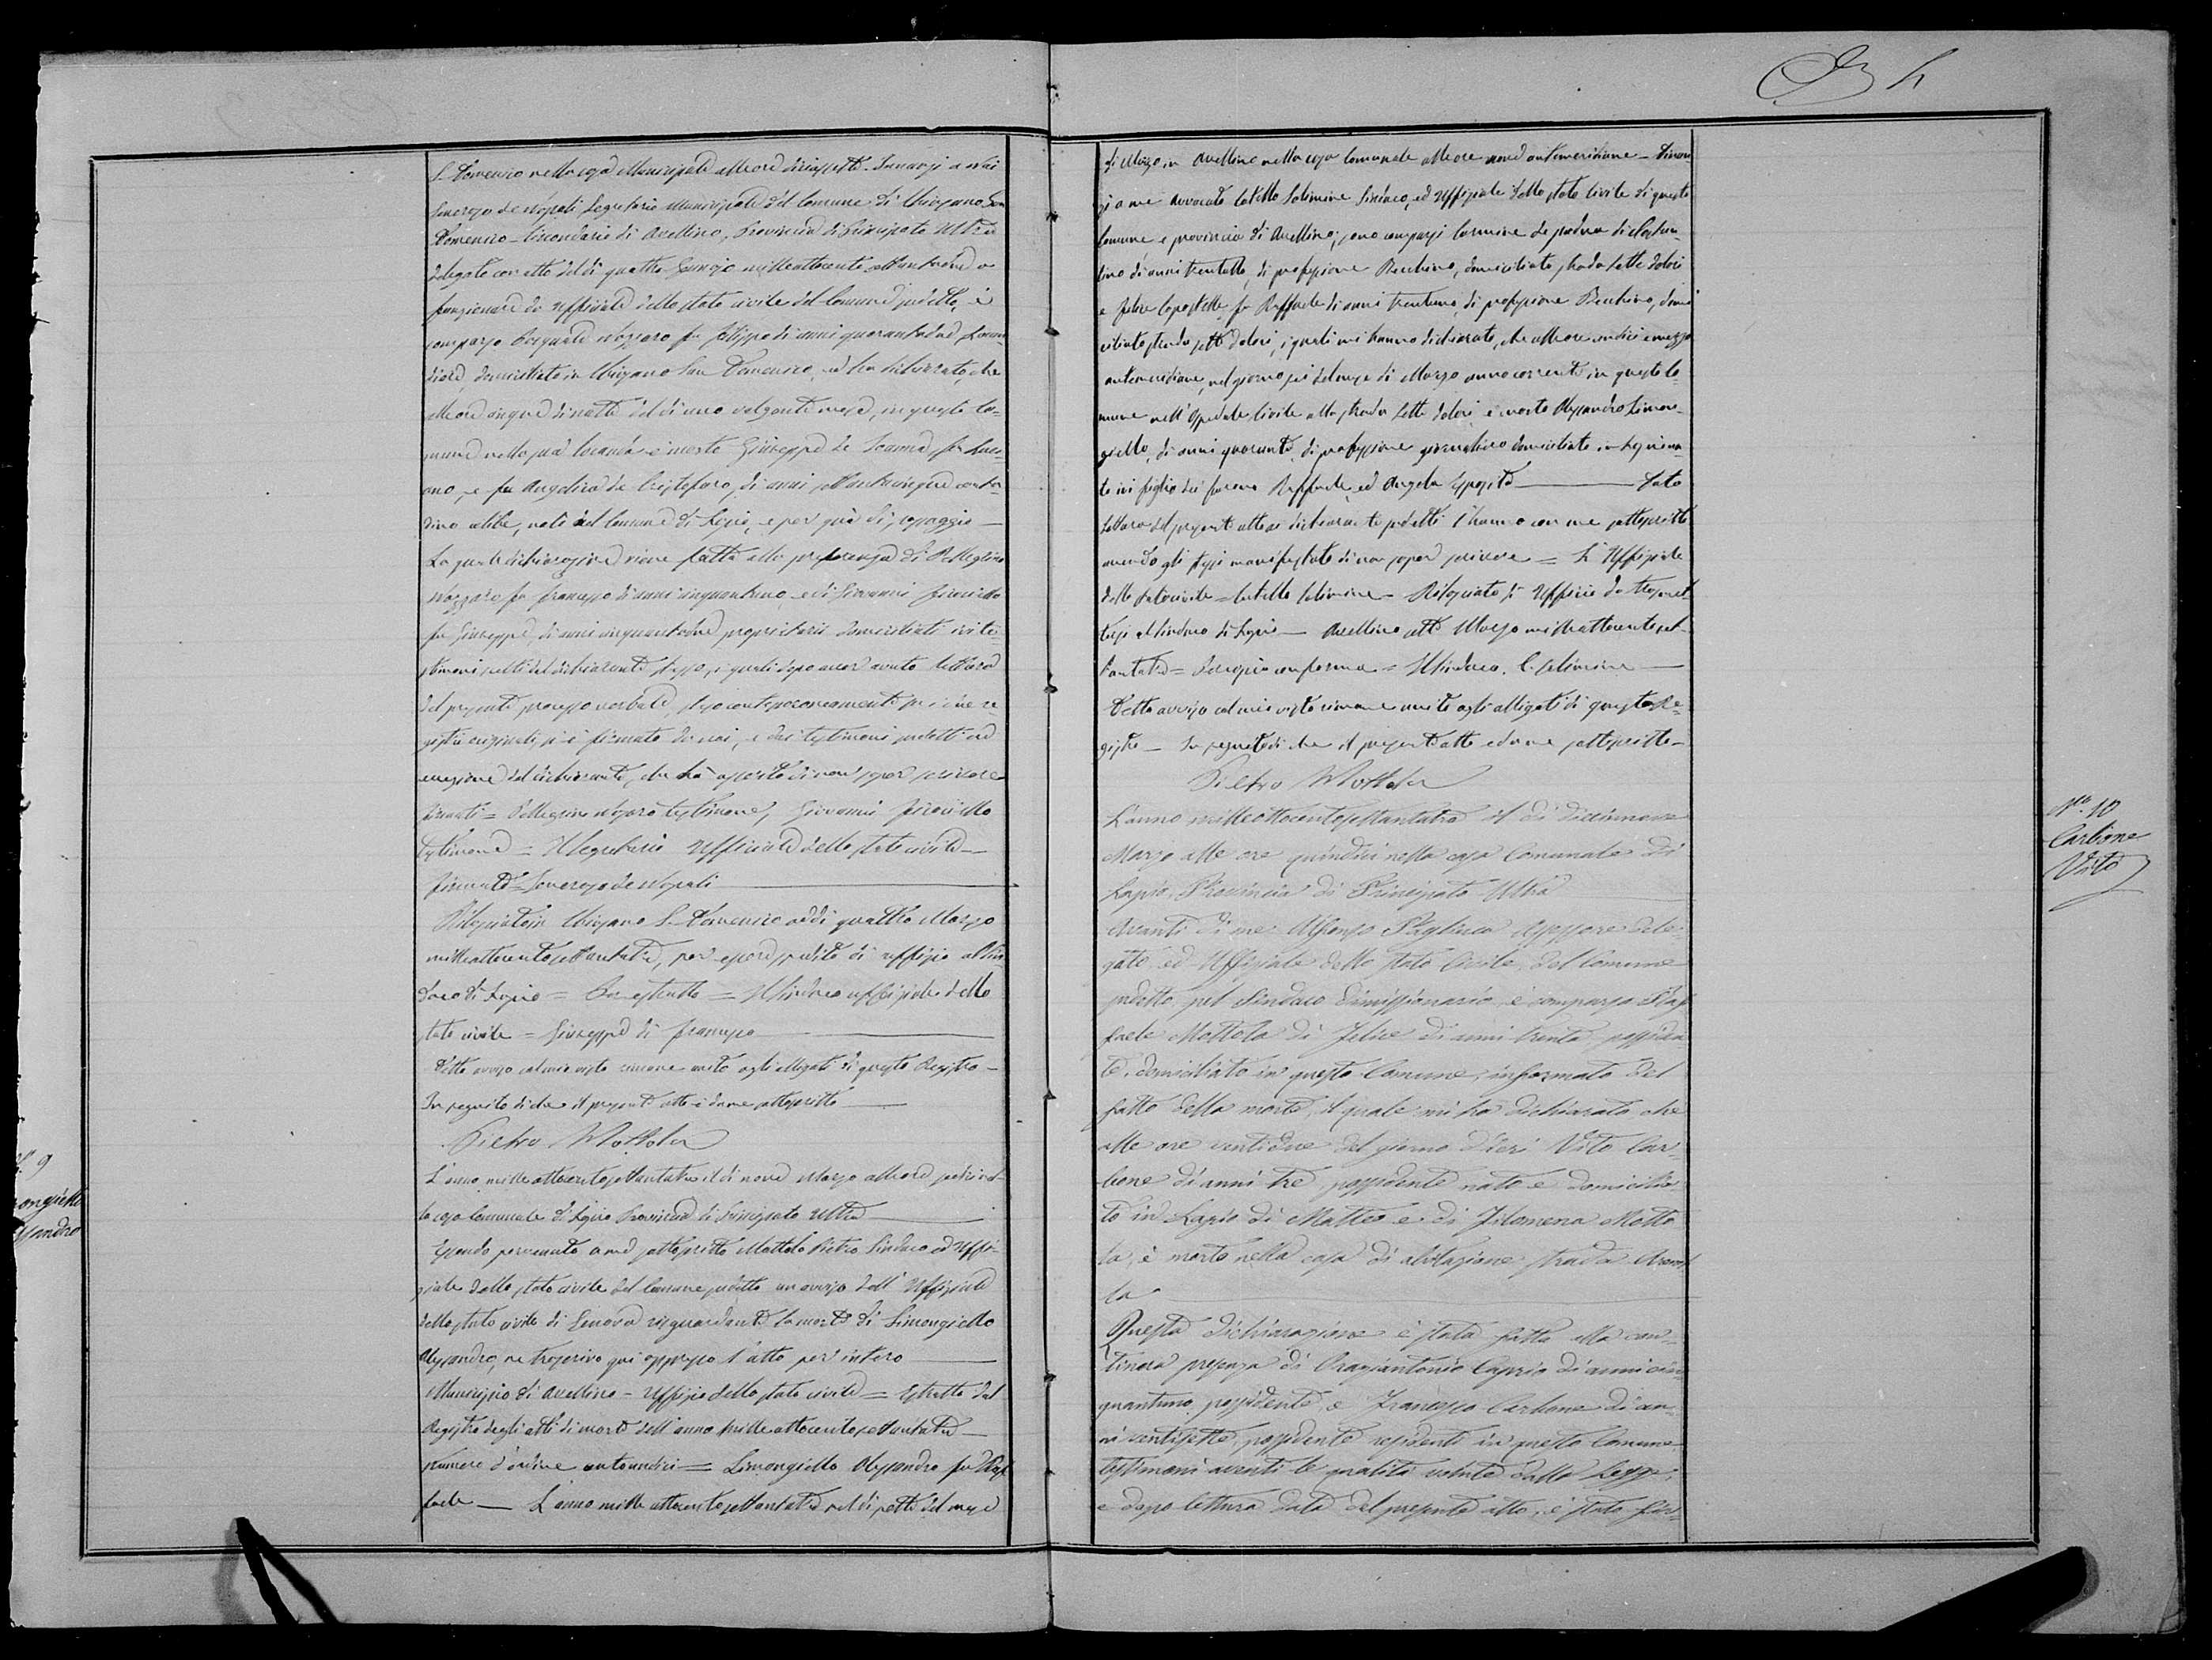 S. Domenico nella casa Municipale alle ore diciassette. Innanzi a Noi
Generoso de Napoli Segretario Municipale del Comune di Chiusano San
Domenico Circondario di Avellino, Provincia di Principato Ultra
delegato con atto del dì quattro Gennajo milleottocento settantadue a
funzionare da Uffiziale dello stato civile del Comune sudetto, è
comparso Pasquale Nazzaro fu Filippo di anni quarantadue
domiciliato in Chiusano San Domenico, ed ha dichiarato, che
alle ore cinque di notte del dì uno volgente mese, in questo Co-
mune nella sua locanda è morto Giuseppe de Ioanna fu
ano, e fu Angelica de Cristofaro, di anni settantacinque conta-
dino celibe, nato del Comune di Lapio, e per qui di passaggio —
La quale dichiarazione viene fatta alla presenza di Pellegrino
Nazzaro fu Francesco di anni cinquantuno, e di Giovanni Fiorillo
fu Giuseppe, di anni cinquantadue proprietarii domiciliati ivi te-
stimoni scelti dal dichiarante stesso, i quali dopo aver avuto lettura
del presente processo verbale, steso contemporaneamente su i due re
gistri originali si è firmato da noi, e dai testimoni sudetti ad
eccezione del dichiarante, che ha asserito di non saper scrivere
Firmati = Pellegrino Nazzaro testimone, Giovanni
testimone = Il Segretario Uffiziale dello stato civile —
firmato = Generoso de Napoli
Rilasciato in Chiusano S. Domenico addì quattro Marzo
milleottocento settantatre, per essere spedito di uffizio al Sin-
daco di Lapio = Per estratto = Il Sindaco uffiziale dello
stato civile = Giuseppe di Francesco
Detto avviso col mio visto rimane unito agli allegati di questo Registro —
In seguito di che il presente atto è da me sottoscritto
Pietro Mottola
N. 9
ongiello
ssandro
L'anno mille ottocento settantatre il dì nove Marzo alle ore sedici nel-
la casa Comunale di Lapio Provincia di Principato Ultra
Essendo pervenuto a me sottoscritto Mottola Pietro Sindaco ed Uffi-
ziale dello stato civile del Comune sudetto un avviso dell' Uffiziale
dello stato civile di riguardante la morte di Limongiello
Alessandro, ne trascrivo qui appresso l'atto per intero
Municipio di Avellino = Uffizio dello stato civile = Estratto dal
Registro degli atti di morte dell'anno mille ottocento settantatre —
Numero d'ordine centoundici = Limongiello Alessandro fu Raf
faele — L'anno mille ottocento settantatre nel dì sette del mese
4
di Marzo in Avellino nella casa Comunale alle ore nove antimeridiane — Dinan
zi a me Avvocato Catello Solimene Sindaco, ed Uffiziale dello stato civile di questo
Comune e provincia di Avellino, sono comparsi Carmine de padova di
tino di anni trentotto, di professione Becchino, domiciliato strada sette dolori
e Felice Capostotto fu Raffaele di anni trentuno, di professione Becchino, domi
ciliato strada sette dolori, i quali mi hanno dichiarato, che alle ore undici e mezzo
antimeridiane, nel giorno sei del mese di Marzo anno corrente in questo Co-
mune nell'Ospedale civile alla strada Sette dolori, è morto Alessandro Limon-
giello, di anni quaranta, di professione giornaliero domiciliato in Lapio na-
to ivi figlio dei furono Raffaele, ed Angela Esposito — Data
lettura del presente atto ai dichiaranti sudetti l'hanno con me sottoscritto
avendo gli stessi manifestato di non saper scrivere = L'Uffiziale
dello stato civile = Catello Solimene — Rilasciato d' Ufficio da trasmet-
tersi al Sindaco di Lapio — Avellino otto Marzo mille ottocento set-
tantatre = Per copia conforme = Il Sindaco. C. Solimene
Detto avviso col mio visto rimane unito agli allegati di questo Re-
gistro — In seguito di che il presente atto è da me sottoscritto —
Pietro Mottola
N.° 10
Carbone
Vito
L'anno milleottocentosettantatre il dì diecinnove
Marzo alle ore quindici nella casa Comunale di
Lapio, Provincia di Principato Ultra
Avanti di me Alfonso Pagliuca Assessore dele-
gato ed Uffiziale dello stato Civile del Comune
sudetto, pel Sindaco dimissionario, è comparso Raf
faele Mottola di Felice di anni trenta possiden-
te, domiciliato in questo Comune, informato del
fatto della morte, il quale mi ha dichiarato, che
alle ore ventidue del giorno d'ieri Vito Car-
bone di anni tre possidente nato e domicilia-
to in Lapio di Matteo e di Filomena Motto
la, è morto nella casa di abitazione strada
la
Questa dichiarazione è stata fatta alla con-
tinova presenza di Oraziantonio Caprio di anni cin-
quantuno possidente, e Francesco Carbone di an-
ni ventisette, possidente residenti in questo Comune
testimoni aventi le qualità volute dalla Legge,
e dopo lettura data del presente atto, è stato fir-